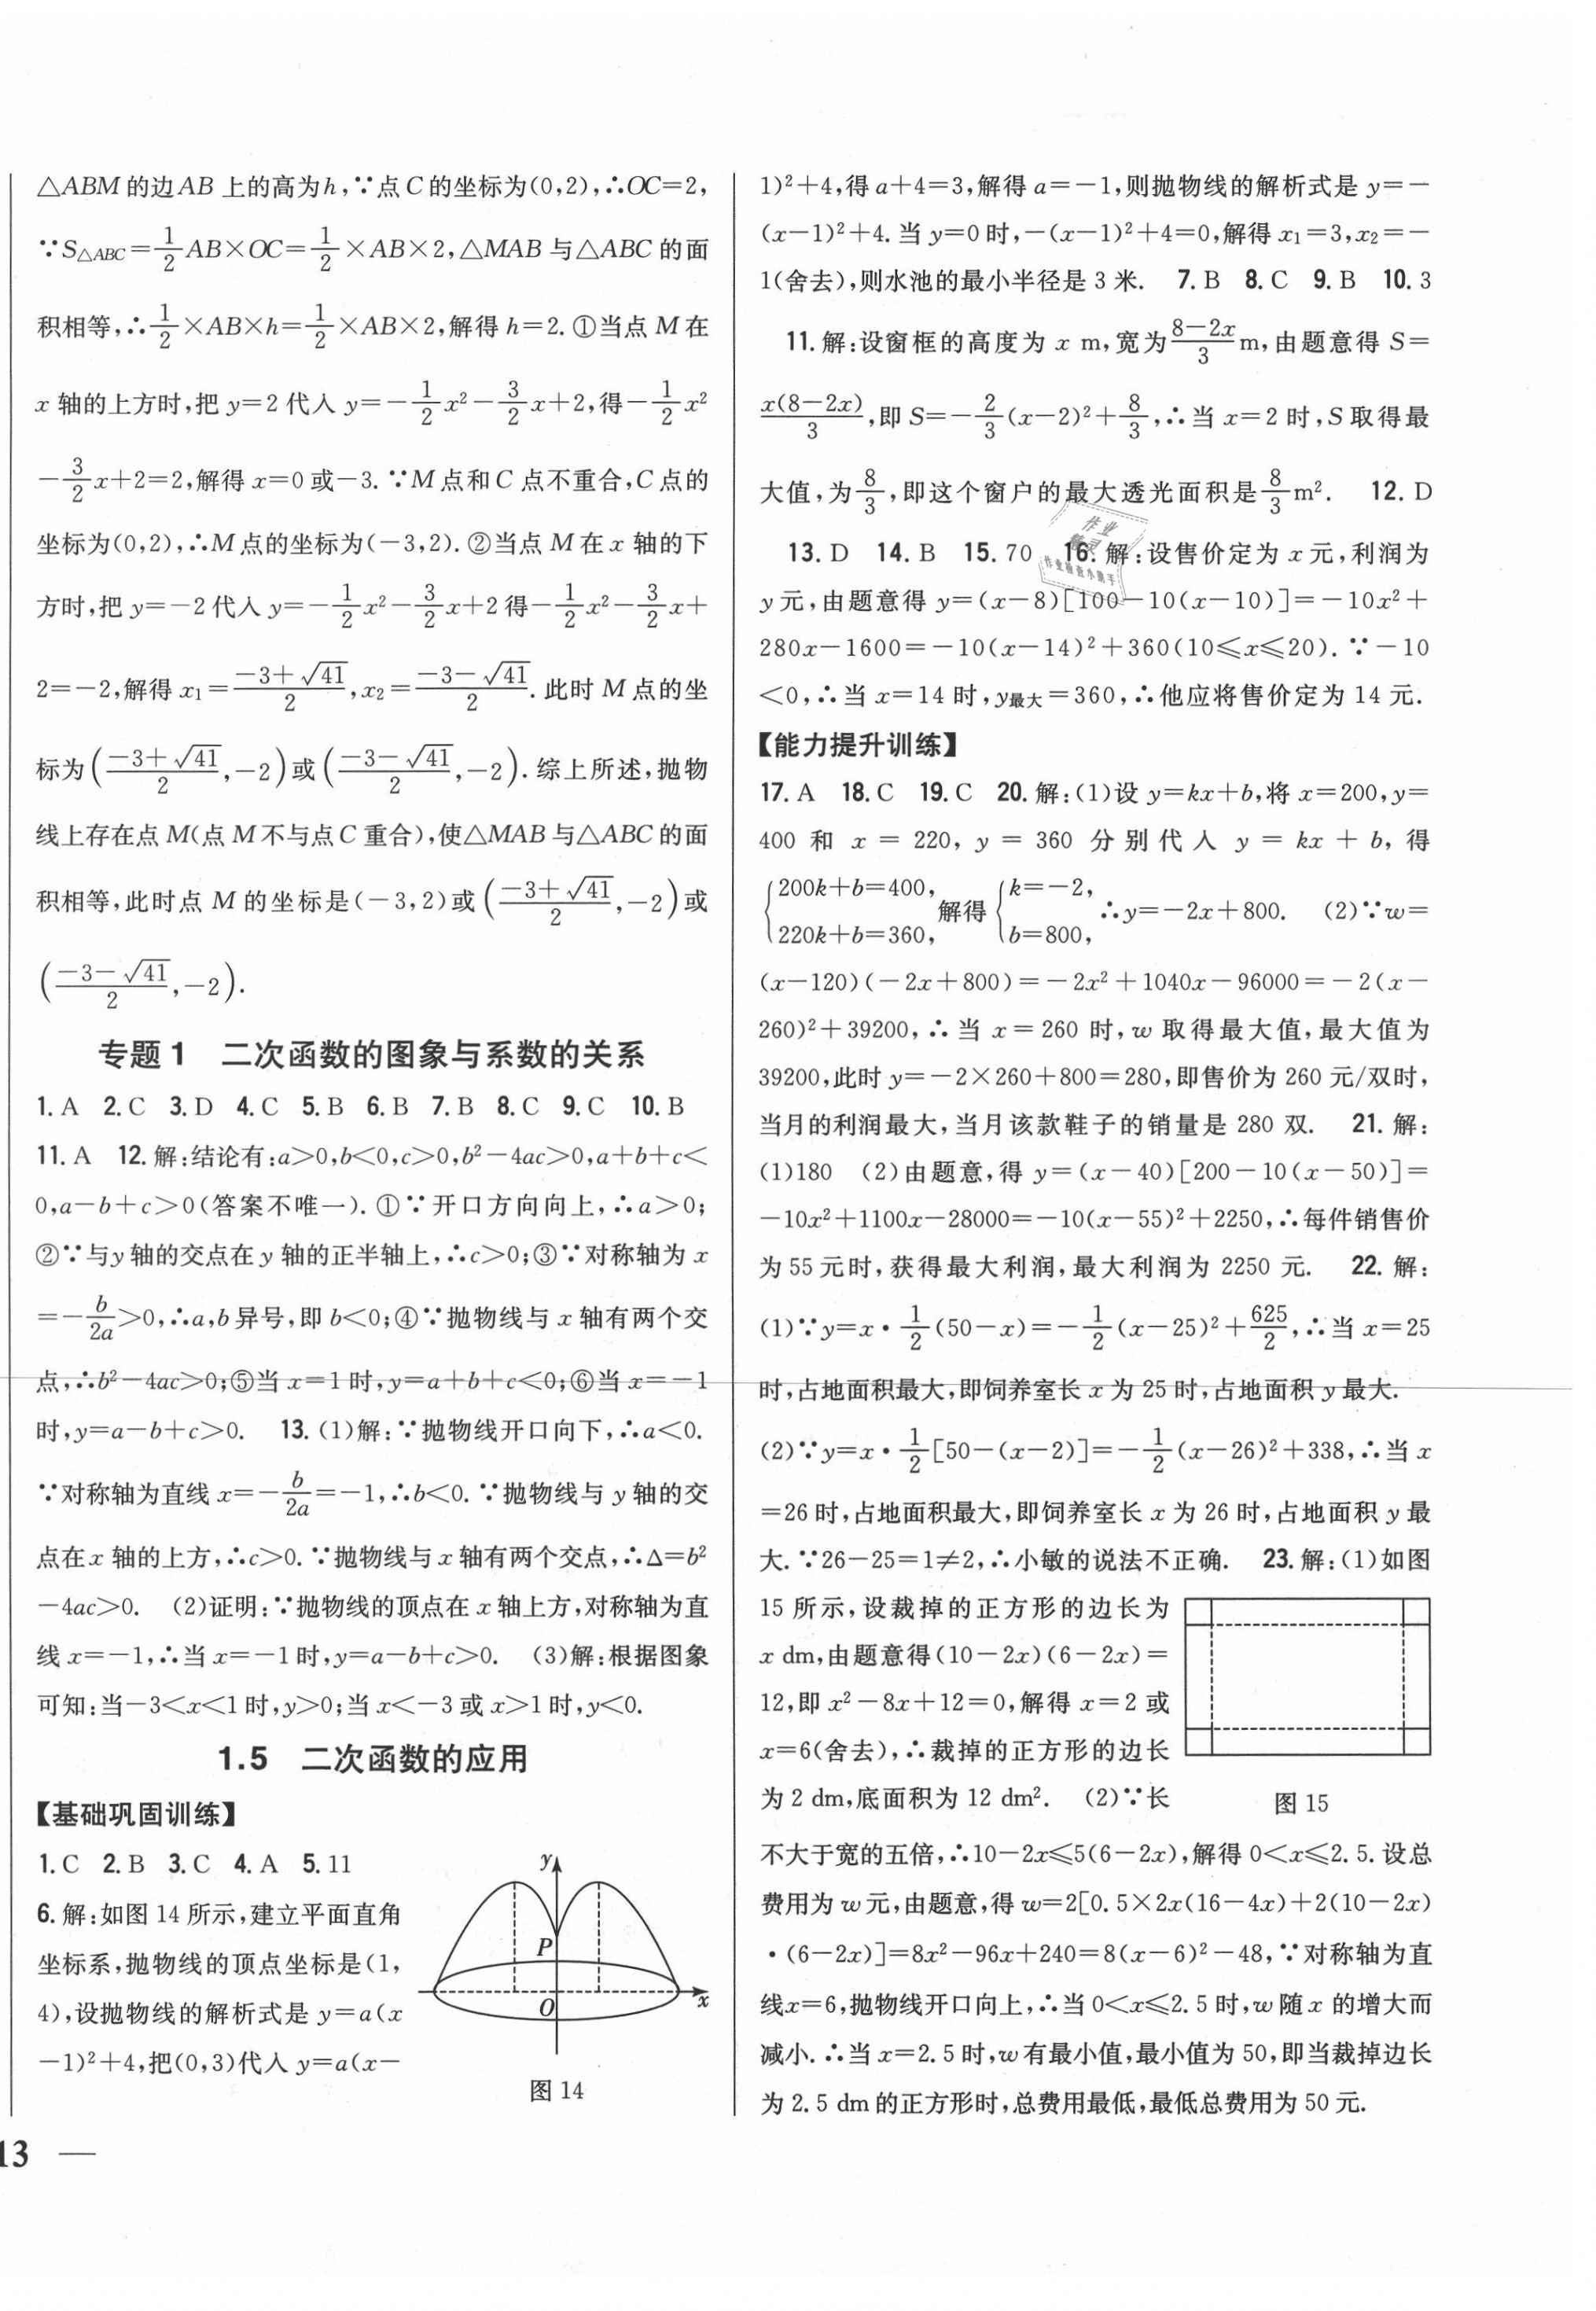 △ABM的边AB上的高为h,∵点C的坐标为(0,2),∴OC=2,
∵S△ABC=1/2AB×OC=1/2×AB×2,△MAB与△ABC的面
积相等,∴1/2×AB×h=1/2×AB×2,解得h=2.①当点M在
x轴的上方时,把y=2代入y=-1/2x²-3/2x+2,得-1/2x²
-3/2x+2=2,解得x=0或-3.∵M点和C点不重合,C点的
坐标为(0,2),∴M点的坐标为(-3,2).②当点M在x轴的下
方时,把y=-2代入y=-1/2x²-3/2x+2得-1/2x²-3/2x+
2=-2,解得x₁=(-3+√41)/2,x₂=(-3-√41)/2.此时M点的坐
标为((-3+√41)/2,-2)或((-3-√41)/2,-2).综上所述,抛物
线上存在点M(点M不与点C重合),使△MAB与△ABC的面
积相等,此时点M的坐标是(-3,2)或((-3+√41)/2,-2)或
((-3-√41)/2,-2).
专题1 二次函数的图象与系数的关系
1.A 2.C 3.D 4.C 5.B 6.B 7.B 8.C 9.C 10.B
11.A 12.解:结论有:a>0,b<0,c>0,b²-4ac>0,a+b+c<
0,a-b+c>0(答案不唯一).①∵开口方向向上,∴a>0;
②∵与y轴的交点在y轴的正半轴上,∴c>0;③∵对称轴为x
=-b/2a>0,∴a,b异号,即b<0;④∵抛物线与x轴有两个交
点,∴b²-4ac>0;⑤当x=1时,y=a+b+c<0;⑥当x=-1
时,y=a-b+c>0. 13.(1)解:∵抛物线开口向下,∴a<0.
∵对称轴为直线x=-b/2a=-1,∴b<0.∵抛物线与y轴的交
点在x轴的上方,∴c>0.∵抛物线与x轴有两个交点,∴Δ=b²
-4ac>0. (2)证明:∵抛物线的顶点在x轴上方,对称轴为直
线x=-1,∴当x=-1时,y=a-b+c>0. (3)解:根据图象
可知:当-3<x<1时,y>0;当x<-3或x>1时,y<0.
1.5 二次函数的应用
【基础巩固训练】
1.C 2.B 3.C 4.A 5.11
6.解:如图14所示,建立平面直角
坐标系,抛物线的顶点坐标是(1,
4),设抛物线的解析式是y=a(x
-1)²+4,把(0,3)代入y=a(x-
y
P
O
x
图14
13 —
1)²+4,得a+4=3,解得a=-1,则抛物线的解析式是y=-
(x-1)²+4.当y=0时,-(x-1)²+4=0,解得x₁=3,x₂=-
1(舍去),则水池的最小半径是3米. 7.B 8.C 9.B 10.3
11.解:设窗框的高度为x m,宽为(8-2x)/3 m,由题意得S=
x(8-2x)/3,即S=-2/3(x-2)²+8/3,∴当x=2时,S取得最
大值,为8/3,即这个窗户的最大透光面积是8/3 m². 12.D
13.D 14.B 15.70 16.解:设售价定为x元,利润为
y元,由题意得y=(x-8)[100-10(x-10)]=-10x²+
280x-1600=-10(x-14)²+360(10≤x≤20).∵-10
<0,∴当x=14时,y最大=360,∴他应将售价定为14元.
【能力提升训练】
17.A 18.C 19.C 20.解:(1)设y=kx+b,将x=200,y=
400和x=220,y=360分别代入y=kx+b,得
{200k+b=400, 220k+b=360,解得{k=-2, b=800,∴y=-2x+800. (2)∵w=
(x-120)(-2x+800)=-2x²+1040x-96000=-2(x-
260)²+39200,∴当x=260时,w取得最大值,最大值为
39200,此时y=-2×260+800=280,即售价为260元/双时,
当月的利润最大,当月该款鞋子的销量是280双. 21.解:
(1)180 (2)由题意,得y=(x-40)[200-10(x-50)]=
-10x²+1100x-28000=-10(x-55)²+2250,∴每件销售价
为55元时,获得最大利润,最大利润为2250元. 22.解:
(1)∵y=x·1/2(50-x)=-1/2(x-25)²+625/2,∴当x=25
时,占地面积最大,即饲养室长x为25时,占地面积y最大.
(2)∵y=x·1/2[50-(x-2)]=-1/2(x-26)²+338,∴当x
=26时,占地面积最大,即饲养室长x为26时,占地面积y最
大.∵26-25=1≠2,∴小敏的说法不正确. 23.解:(1)如图
15所示,设裁掉的正方形的边长为
x dm,由题意得(10-2x)(6-2x)=
12,即x²-8x+12=0,解得x=2或
x=6(舍去),∴裁掉的正方形的边长
为2 dm,底面积为12 dm². (2)∵长
图15
不大于宽的五倍,∴10-2x≤5(6-2x),解得0<x≤2.5.设总
费用为w元,由题意,得w=2[0.5×2x(16-4x)+2(10-2x)
·(6-2x)]=8x²-96x+240=8(x-6)²-48,∵对称轴为直
线x=6,抛物线开口向上,∴当0<x≤2.5时,w随x的增大而
减小.∴当x=2.5时,w有最小值,最小值为50,即当裁掉边长
为2.5 dm的正方形时,总费用最低,最低总费用为50元.